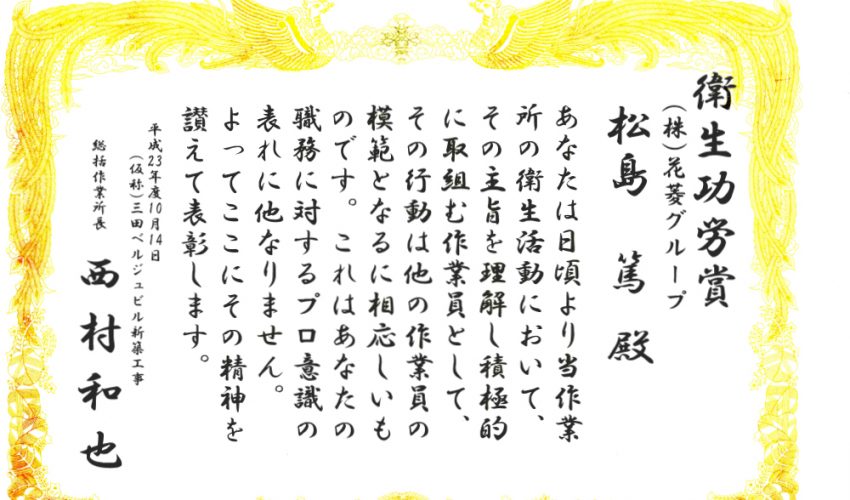 衛生功労賞
(株)花菱グループ
松島 篤 殿
あなたは日頃より当作業
所の衛生活動において、
その主旨を理解し積極的
に取組む作業員として、
その行動は他の作業員の
模範となるに相応しいも
のです。これはあなたの
職務に対するプロ意識の
表れに他なりません。
よってここにその精神を
讃えて表彰します。
平成23年度10月14日
(仮称)三田ベルジュビル新築工事
総括作業所長
西村和也